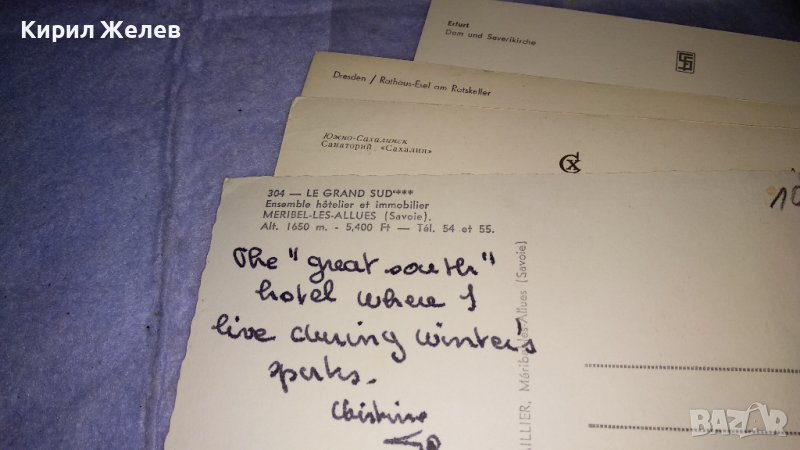 Кирил Желев
Erfurt
Dom und Severikirche
Dresden / Rathaus-Esel am Ratskeller
Южно-Сахалинск
Санаторий «Сахалин»
304 — LE GRAND SUD****
Ensemble hôtelier et immobilier
MERIBEL-LES-ALLUES (Savoie).
Alt. 1650 m. - 5,400 Ft — Tél. 54 et 55.
The "great south"
hotel where I
live during winter's
sports.
Christine
AILLIER, Méribel-les-Allues (Savoie)
10
BAZAR